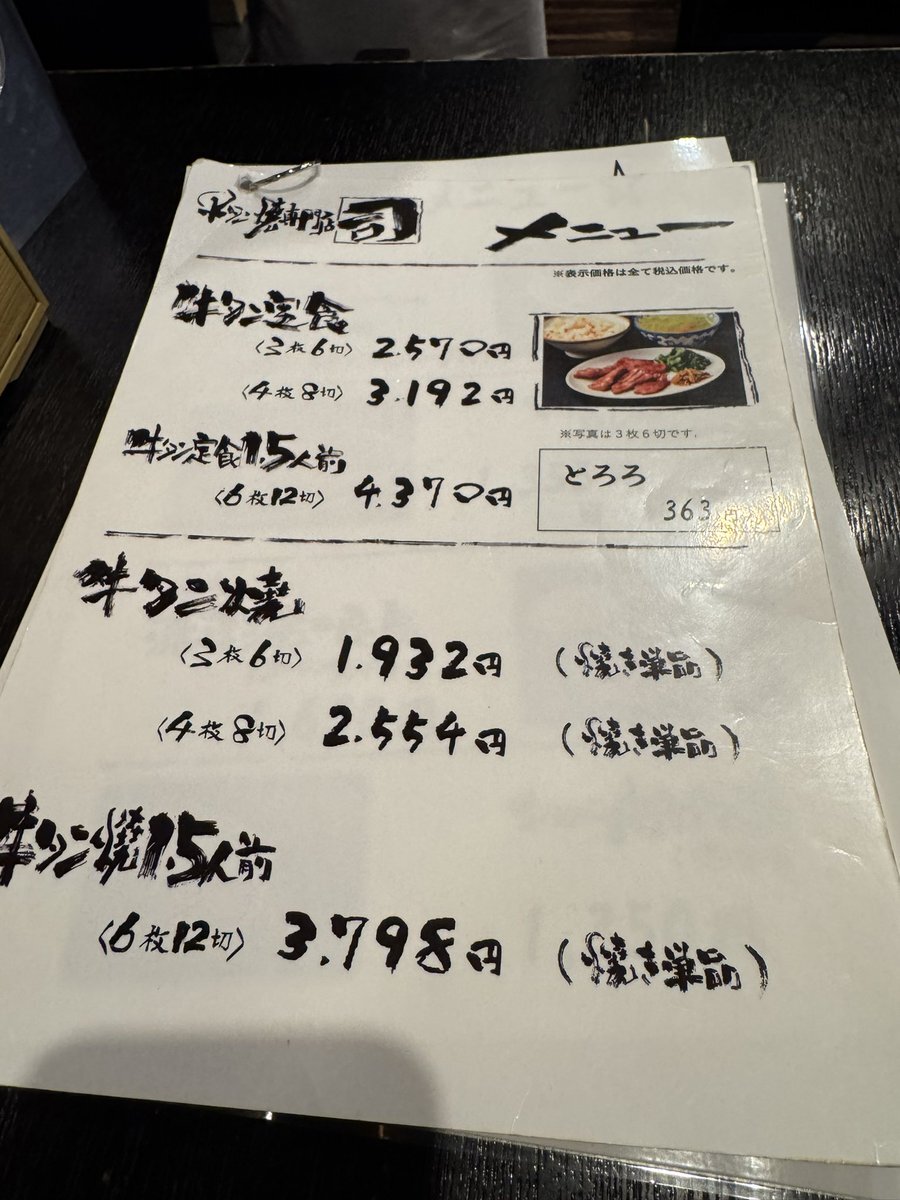 牛タン焼専門店 司 メニュー
※表示価格は全て税込価格です。
牛タン定食
〈3枚6切〉 2.570円
〈4枚8切〉 3.192円
※写真は3枚6切です。
牛タン定食1.5人前
〈6枚12切〉 4.370円
とろろ
363円
牛タン焼
〈3枚6切〉 1.932円 (焼き単品)
〈4枚8切〉 2.554円 (焼き単品)
牛タン焼1.5人前
〈6枚12切〉 3.798円 (焼き単品)